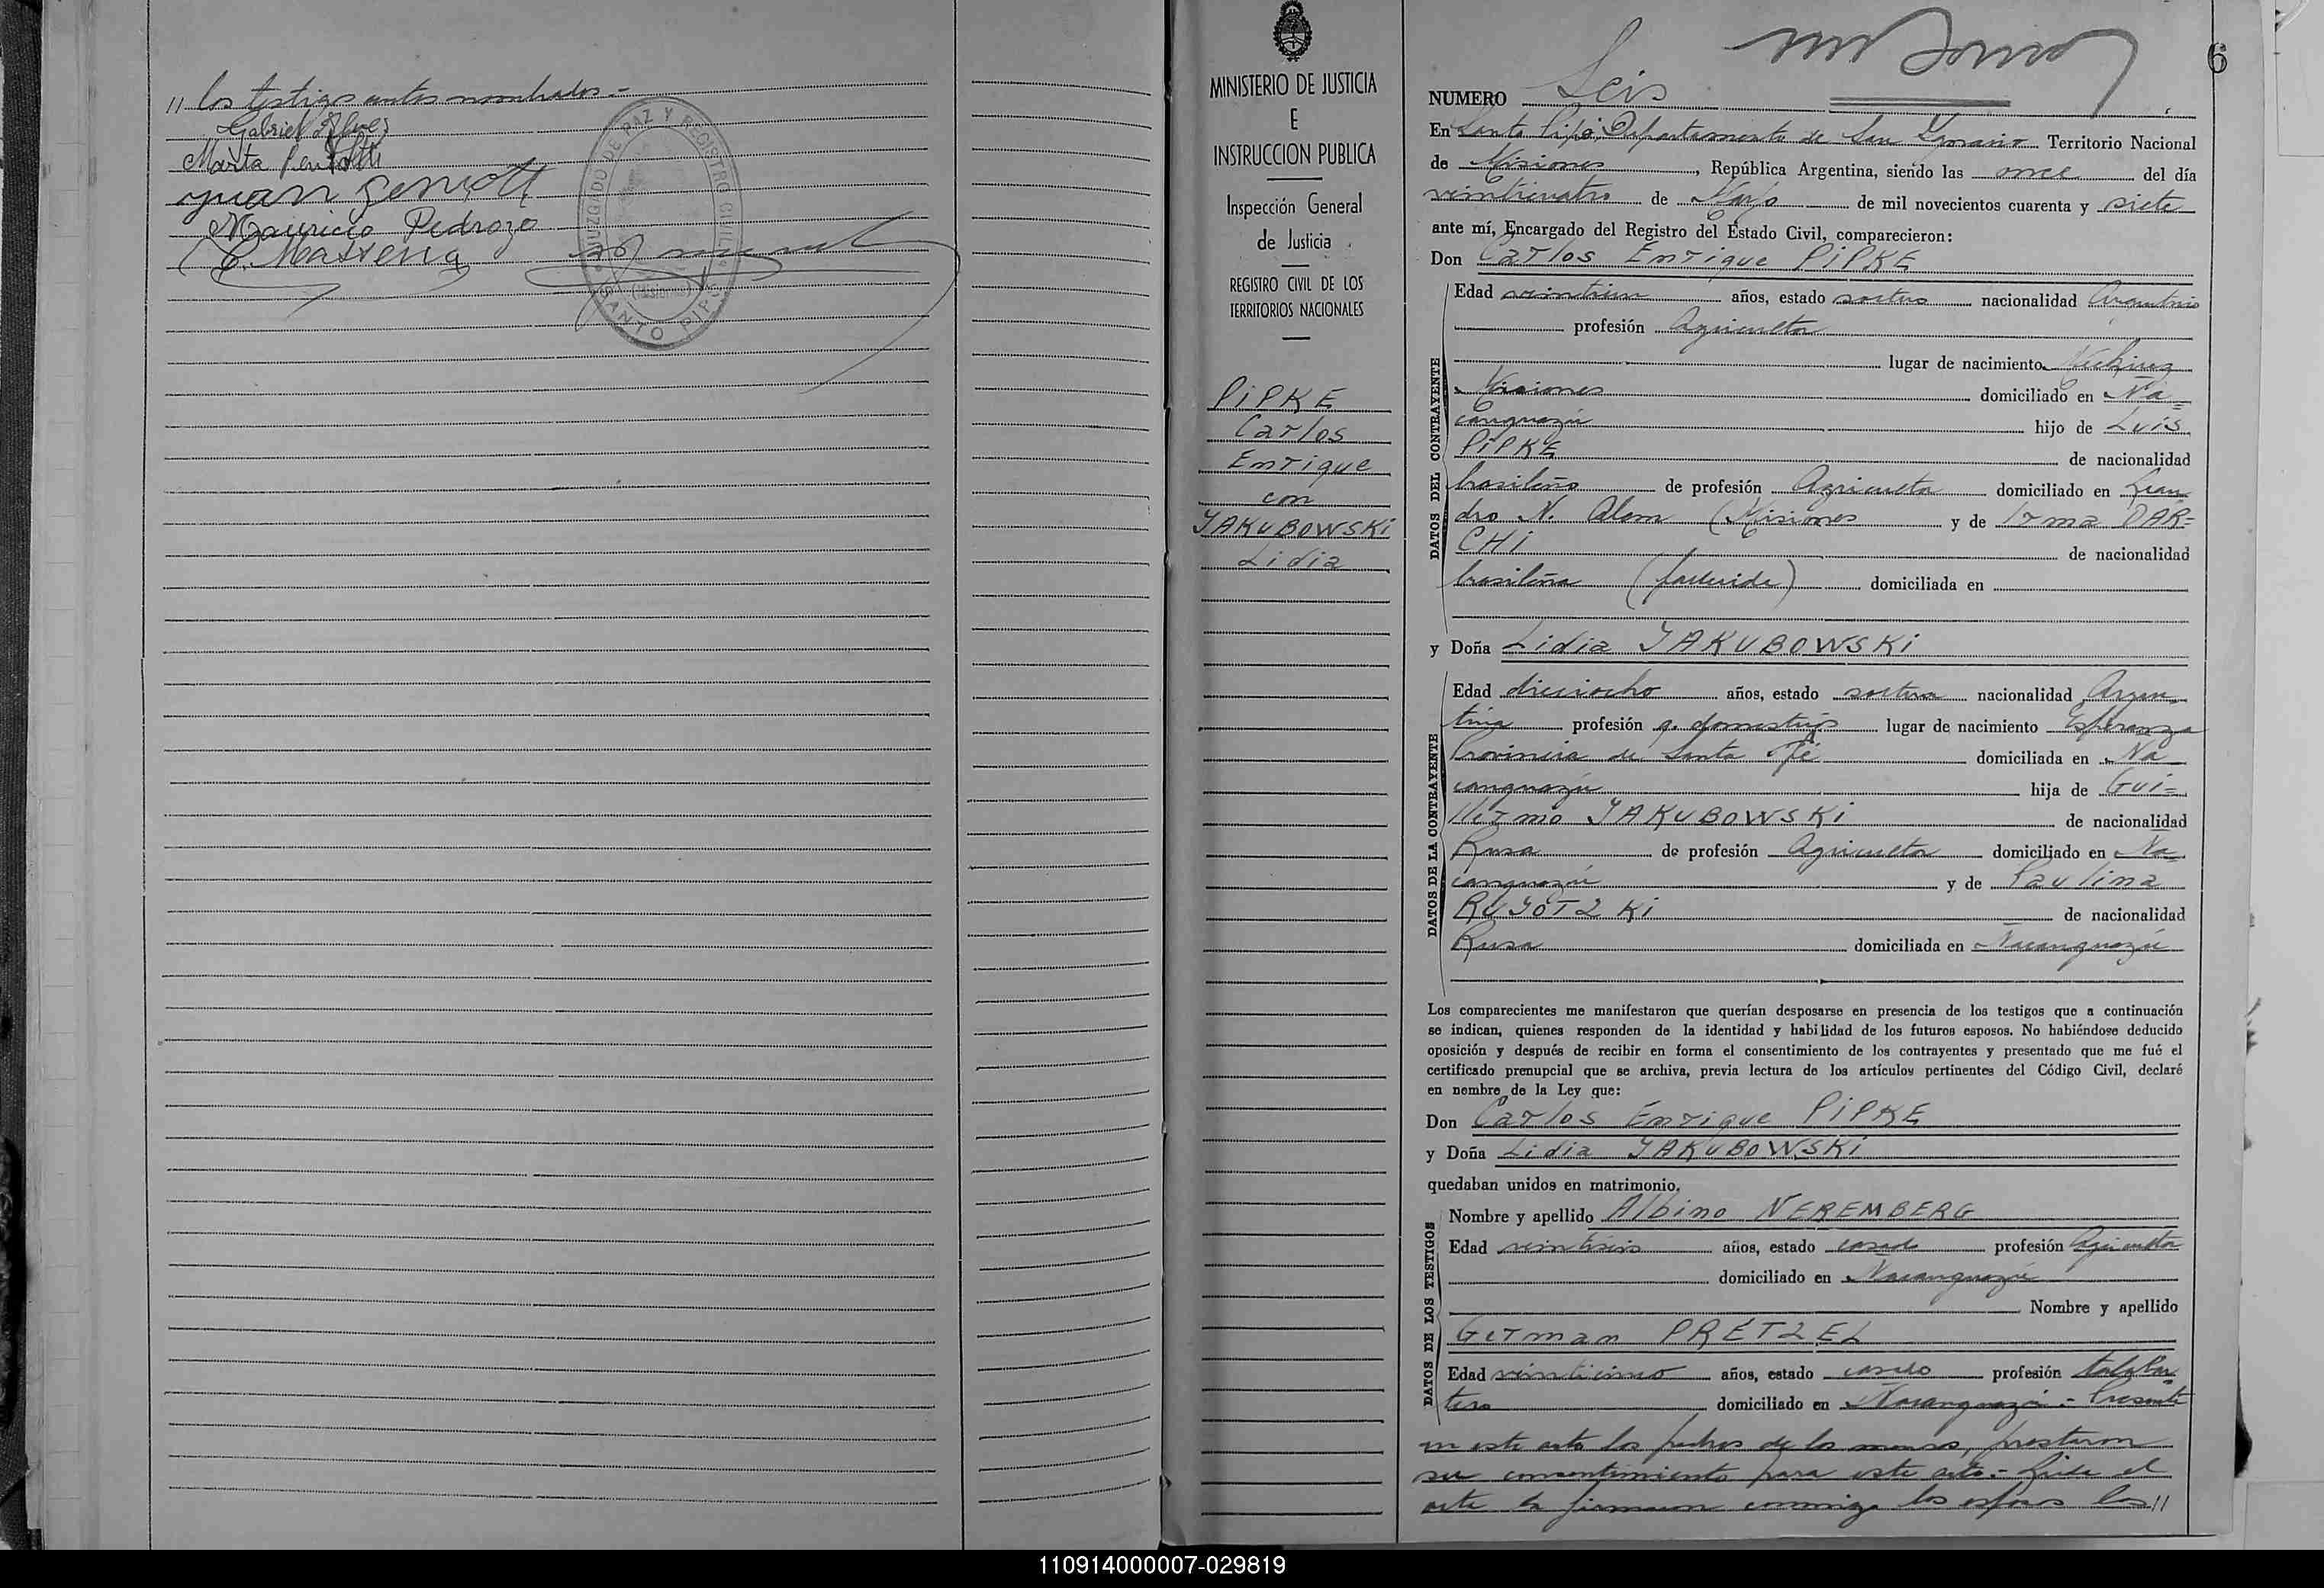 // los testigos antes nombrados.-
Gabriel
Marta
Juan
Mauricio Pedrozo
JUZGADO DE PAZ Y REGISTRO CIVIL
(Misiones)
SANTO PIPÓ
MINISTERIO DE JUSTICIA
E
INSTRUCCION PUBLICA
Inspección General
de Justicia
REGISTRO CIVIL DE LOS
TERRITORIOS NACIONALES
PiPKE
Carlos
Enrique
con
YAKUBOWSKi
Lidia
6
NUMERO Seis
En Santo Pipó, Departamento de San Ygnacio Territorio Nacional
de Misiones, República Argentina, siendo las once del día
veinticuatro de Marzo de mil novecientos cuarenta y siete
ante mí, Encargado del Registro del Estado Civil, comparecieron:
Don Carlos Enrique PiPKE
DATOS DEL CONTRAYENTE
Edad años, estado soltero nacionalidad Argentino
profesión Agricultor
lugar de nacimiento
Misiones domiciliado en Ña=
canguazú hijo de Luis
PiPKE de nacionalidad
brasileño de profesión Agricultor domiciliado en Lean
dro N. Alem (Misiones y de Irma DAR=
CHi de nacionalidad
brasileña (fallecida) domiciliada en
y Doña Lidia YAKUBOWSKi
DATOS DE LA CONTRAYENTE
Edad dieciocho años, estado soltera nacionalidad Argen
tina profesión q. domésticos lugar de nacimiento Esperanza
Provincia de Santa Fé domiciliada en Ña
canguazú hija de Gui=
llermo YAKUBOWSKi de nacionalidad
Rusa de profesión Agricultor domiciliado en Ña=
canguazú y de Paulina
RUJOTZKi de nacionalidad
Rusa domiciliada en Ñacanguazú
Los comparecientes me manifestaron que querían desposarse en presencia de los testigos que a continuación
se indican, quienes responden de la identidad y habilidad de los futuros esposos. No habiéndose deducido
oposición y después de recibir en forma el consentimiento de los contrayentes y presentado que me fué el
certificado prenupcial que se archiva, previa lectura de los artículos pertinentes del Código Civil, declaré
en nombre de la Ley que:
Don Carlos Enrique PiPKE
y Doña Lidia YAKUBOWSKi
quedaban unidos en matrimonio.
DATOS DE LOS TESTIGOS
Nombre y apellido Albino NEREMBERG
Edad veintiseis años, estado casado profesión Agricultor
domiciliado en Ñacanguazú
Nombre y apellido
German PRETZEL
Edad veinticinco años, estado casado profesión talabar
tero domiciliado en Ñacanguazú.- Presente
en este acto los padres de los menores, prestaron
su consentimiento para este acto.- Leida el
acta la firmaron conmigo los esposos los //
110914000007-029819